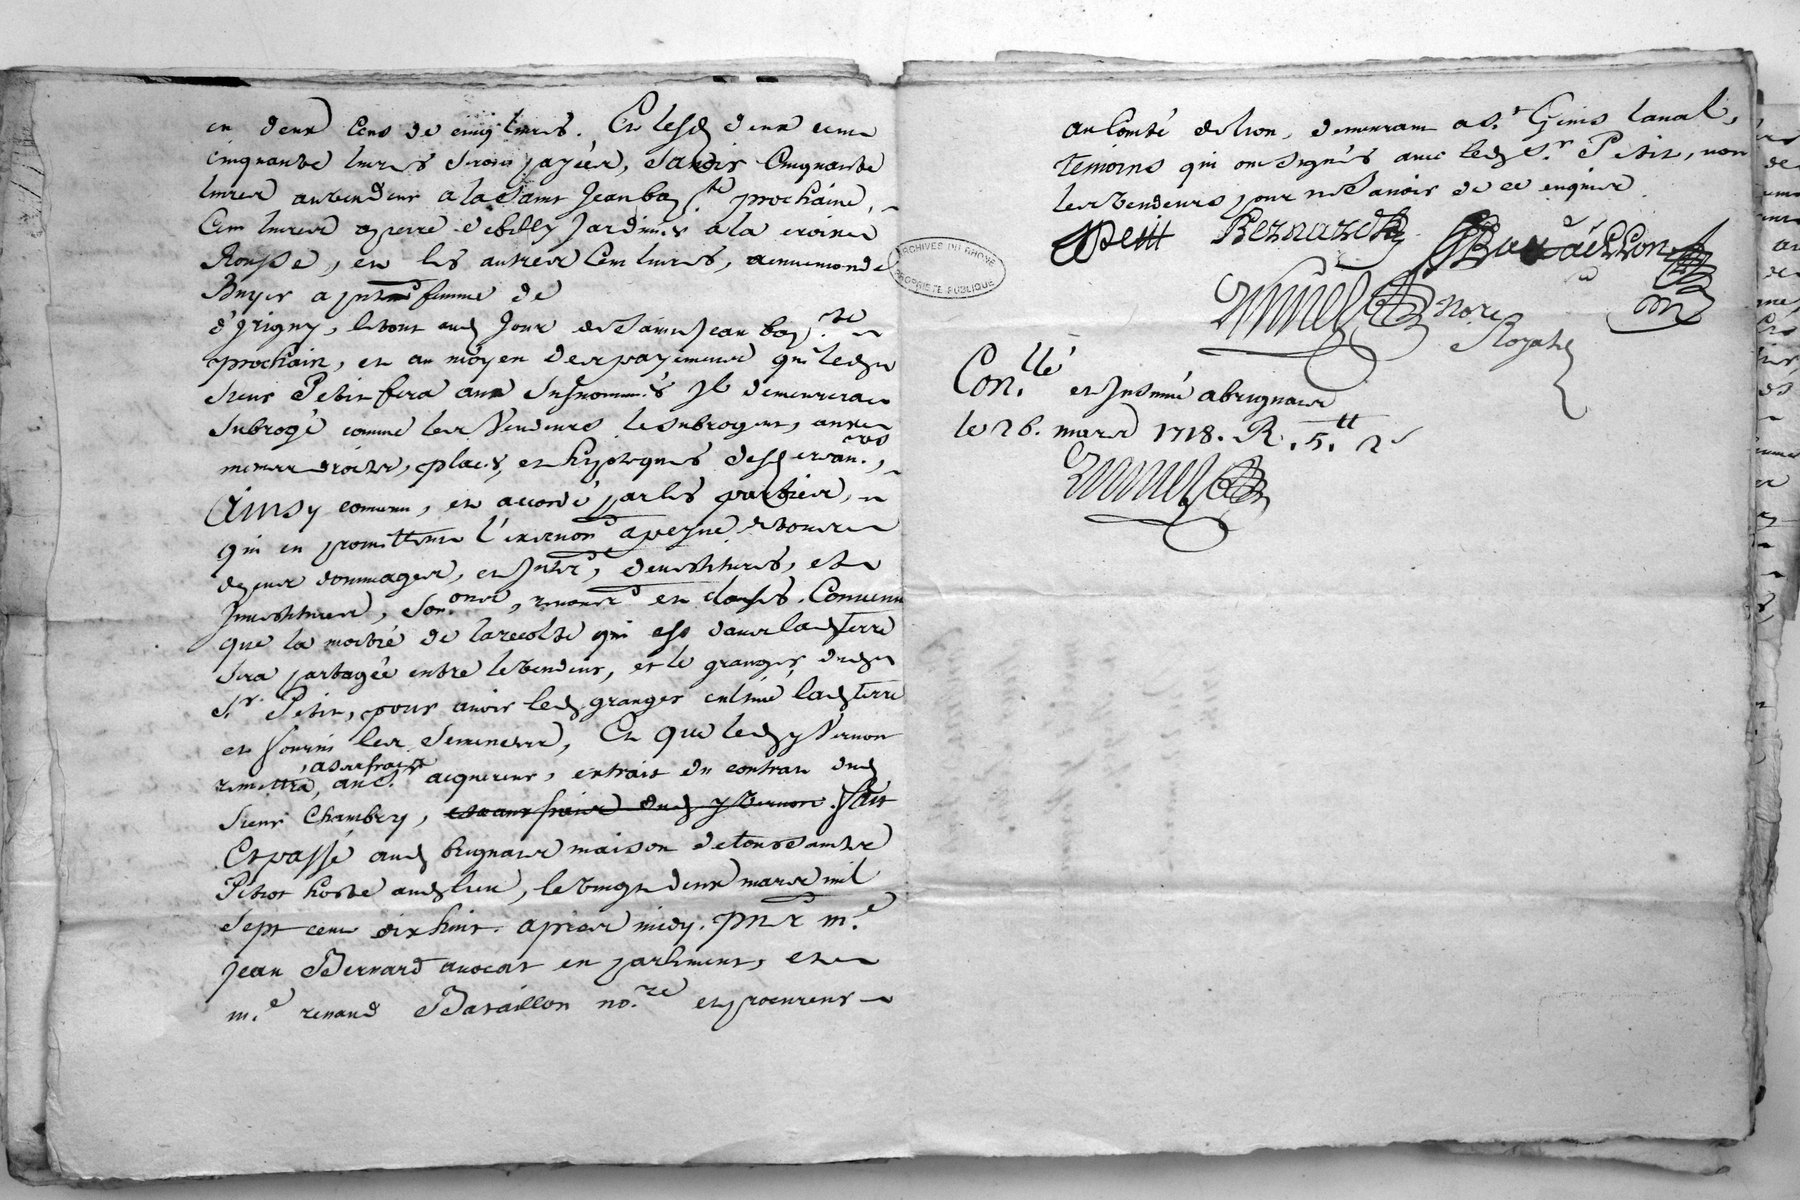 en deux cens de cinq livres. Et lesd deux cens
cinquante livres seront payées, Savoir Cinquante
livres auvendeur a la Saint Jean bap.te prochaine,
Cent livres a pierre debilly Jardinier a la croix
Rousse, et les autres Cent livres, a
Buyer a pnt femme de
d'Grigny, le tout aud Jour de Saint Jean bap.te
prochain, et au moyen des payements que led
sieur Petit fera aux Susnommés Il demeurera
Subrogé comme les Vendeurs le subrogent, aux
mesmes droits, places, et hypoteques desd creanc.rs,
Ainsy convenu, et accordé par les parties,
qui en promettent l'exernon a peyne de tous
depens dommages, et Inter, devestitures, et
Investitures, Son.ons, renonc et clauses. Convenu
que la moitié de la recolte qui est dans lad terre
sera partagée entre le vendeur, et le granger dud
S.r Petit, pour avoir led granger cultivé lad terre
et fourni les semences, Et que led y Vernon
, a ses frais
remettra, aud. acquereur, extrait du contrat dud
sieur Chambry, et aux frais dud y Vernon. fait
Et passé aud brignais maison de
Petiot hoste aud lieu, le vingt deux mars mil
Sept cent dix huit. apres midy. pnt m.e
Jean Bernard avocat en parlement, et
m.e renaud Bataillon no.re et procureur
au Comté de Lion, demeurant a S.t Genis Laval,
temoins qui ont signés avec led S.r Petit, non
les vendeurs pour ne Savoir de ce enquis
Petit Bernard Bataillon
nore
Royal
Con.llé et Insinué a brignais
le 26. mars 1718. R. 5.tt 2s
ARCHIVES DU RHÔNE
PROPRIÉTÉ PUBLIQUE